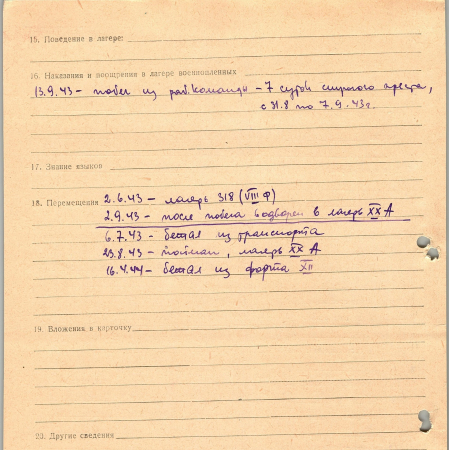 15. Поведение в лагере:
16. Наказания и поощрения в лагере военнопленных
13.9.43 – побег из раб.команды – 7 суток строгого ареста,
с 31.8 по 7.9.43г.
17. Знание языков
18. Перемещения 2.6.43 – лагерь 318 (VIII Ф)
2.9.43 – после побега водворен в лагерь XX А
6.7.43 – бежал из транспорта
23.8.43 – пойман, лагерь XX А
16.4.44 – бежал из форта XII
19. Вложения в карточку
20. Другие сведения